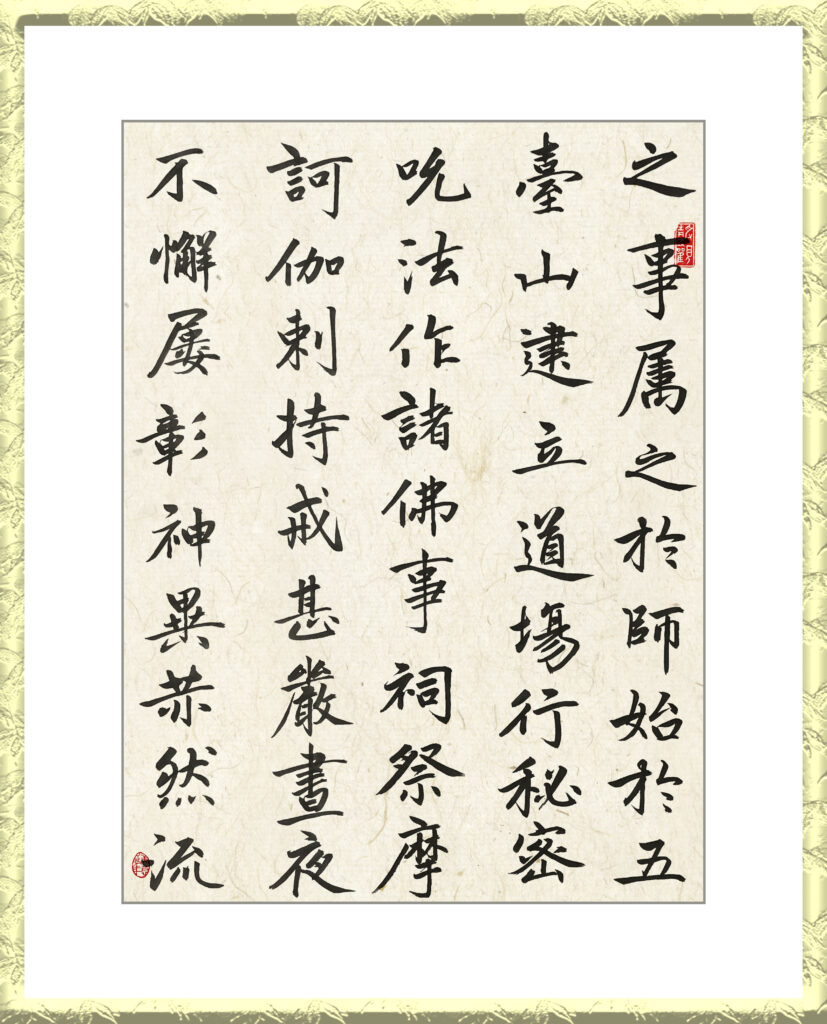 之事属之於師始於五
臺山建立道場行秘密
呪法作諸佛事祠祭摩
訶伽剌持戒甚嚴晝夜
不懈屡彰神異赫然流